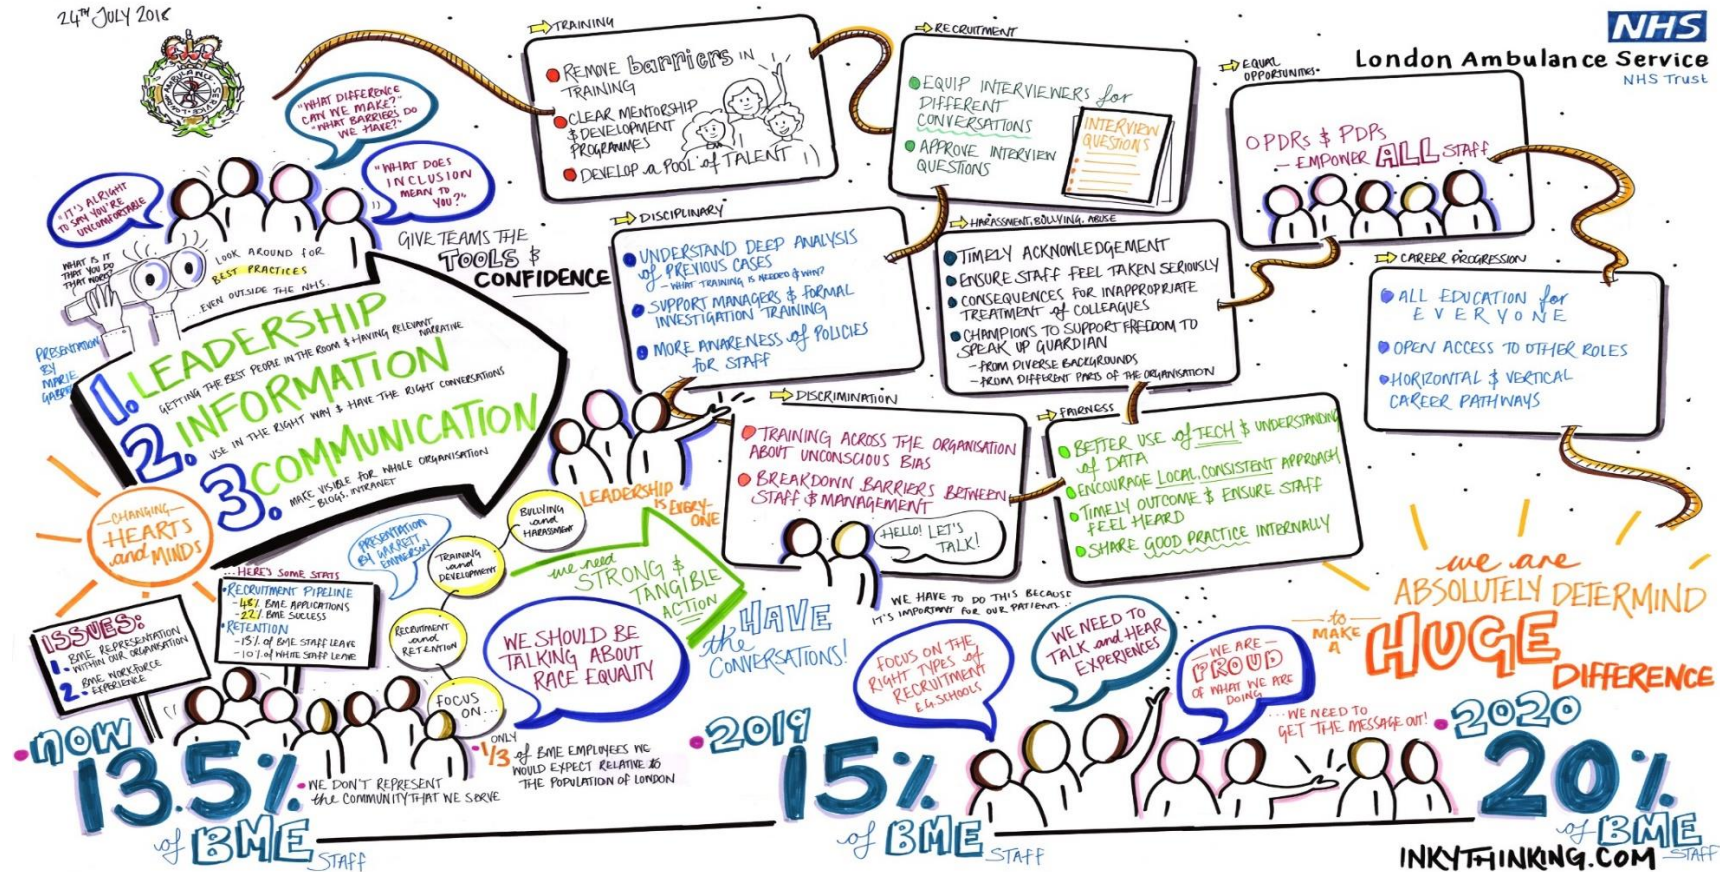 24TH JULY 2018
LONDON AMBULANCE SERVICE
NHS
London Ambulance Service
NHS Trust
"WHAT DIFFERENCE
CAN WE MAKE?"
"WHAT BARRIERS DO
WE HAVE?"
"WHAT DOES
INCLUSION
MEAN TO
YOU?"
"IT'S ALRIGHT
TO SAY YOU'RE
UNCOMFORTABLE
WHAT IS IT
THAT YOU DO
THAT WORKS?
LOOK AROUND for
BEST PRACTICES
...EVEN OUTSIDE THE NHS.
GIVE TEAMS THE
TOOLS &
CONFIDENCE
PRESENTATION
BY
MARIE
1. LEADERSHIP
GETTING THE BEST PEOPLE IN THE ROOM & HAVING RELEVANT
NARRATIVE
2. INFORMATION
USE IN THE RIGHT WAY & HAVE THE RIGHT CONVERSATIONS
3. COMMUNICATION
MAKE VISIBLE FOR WHOLE ORGANISATION
- BLOGS, INTRANET
TRAINING
REMOVE barriers IN
TRAINING
CLEAR MENTORSHIP
& DEVELOPMENT
PROGRAMMES
DEVELOP a POOL of TALENT
RECRUITMENT
EQUIP INTERVIEWERS for
DIFFERENT
CONVERSATIONS
APPROVE INTERVIEW
QUESTIONS
INTERVIEW
QUESTIONS
EQUAL
OPPORTUNITIES
OPDRs & PDPs
- EMPOWER ALL STAFF
DISCIPLINARY
UNDERSTAND DEEP ANALYSIS
of PREVIOUS CASES
- WHAT TRAINING IS NEEDED & WHY?
SUPPORT MANAGERS & FORMAL
INVESTIGATION TRAINING
MORE AWARENESS of POLICIES
for STAFF
HARASSMENT, BULLYING, ABUSE
TIMELY ACKNOWLEDGEMENT
ENSURE STAFF FEEL TAKEN SERIOUSLY
CONSEQUENCES FOR INAPPROPRIATE
TREATMENT of COLLEAGUES
CHAMPIONS TO SUPPORT FREEDOM TO
SPEAK UP GUARDIAN
- FROM DIVERSE BACKGROUNDS
- FROM DIFFERENT PARTS OF THE ORGANISATION
CAREER PROGRESSION
ALL EDUCATION for
EVERYONE
OPEN ACCESS TO OTHER ROLES
HORIZONTAL & VERTICAL
CAREER PATHWAYS
DISCRIMINATION
TRAINING ACROSS THE ORGANISATION
ABOUT UNCONSCIOUS BIAS
BREAKDOWN BARRIERS BETWEEN
STAFF & MANAGEMENT
HELLO! LET'S
TALK!
FAIRNESS
BETTER USE of TECH & UNDERSTANDING
of DATA
ENCOURAGE LOCAL, CONSISTENT APPROACH
TIMELY OUTCOME & ENSURE STAFF
FEEL HEARD
SHARE GOOD PRACTICE INTERNALLY
LEADERSHIP
IS EVERY-
ONE
- CHANGING -
HEARTS
and MINDS
PRESENTATION
BY GARRETT
EMMERSON
BULLYING
and
HARASSMENT
TRAINING
and
DEVELOPMENT
RECRUITMENT
and
RETENTION
FOCUS
ON...
we need
STRONG &
TANGIBLE
ACTION
...HERE'S SOME STATS
RECRUITMENT PIPELINE
- 48% BME APPLICATIONS
- 22% BME SUCCESS
RETENTION
- 13% of BME STAFF LEAVE
- 10% of WHITE STAFF LEAVE
ISSUES:
1. BME REPRESENTATION
WITHIN OUR ORGANISATION
2. BME WORKFORCE
EXPERIENCE
WE SHOULD BE
TALKING ABOUT
RACE EQUALITY
HAVE
the
CONVERSATIONS!
WE HAVE TO DO THIS BECAUSE
IT'S IMPORTANT FOR OUR PATIENTS...
FOCUS ON THE
RIGHT TYPES of
RECRUITMENT
E.G. SCHOOLS
WE NEED TO
TALK and HEAR
EXPERIENCES
- WE ARE -
PROUD
OF WHAT WE ARE
DOING
...WE NEED TO
GET THE MESSAGE OUT!
we are
ABSOLUTELY DETERMIND
to
MAKE
A
HUGE
DIFFERENCE
NOW
13.5%
of BME STAFF
WE DON'T REPRESENT
the COMMUNITY THAT WE SERVE
ONLY
1/3 of BME EMPLOYEES WE
WOULD EXPECT RELATIVE to
THE POPULATION OF LONDON
2019
15%
of BME STAFF
2020
20%
of BME STAFF
INKYTHINKING.COM